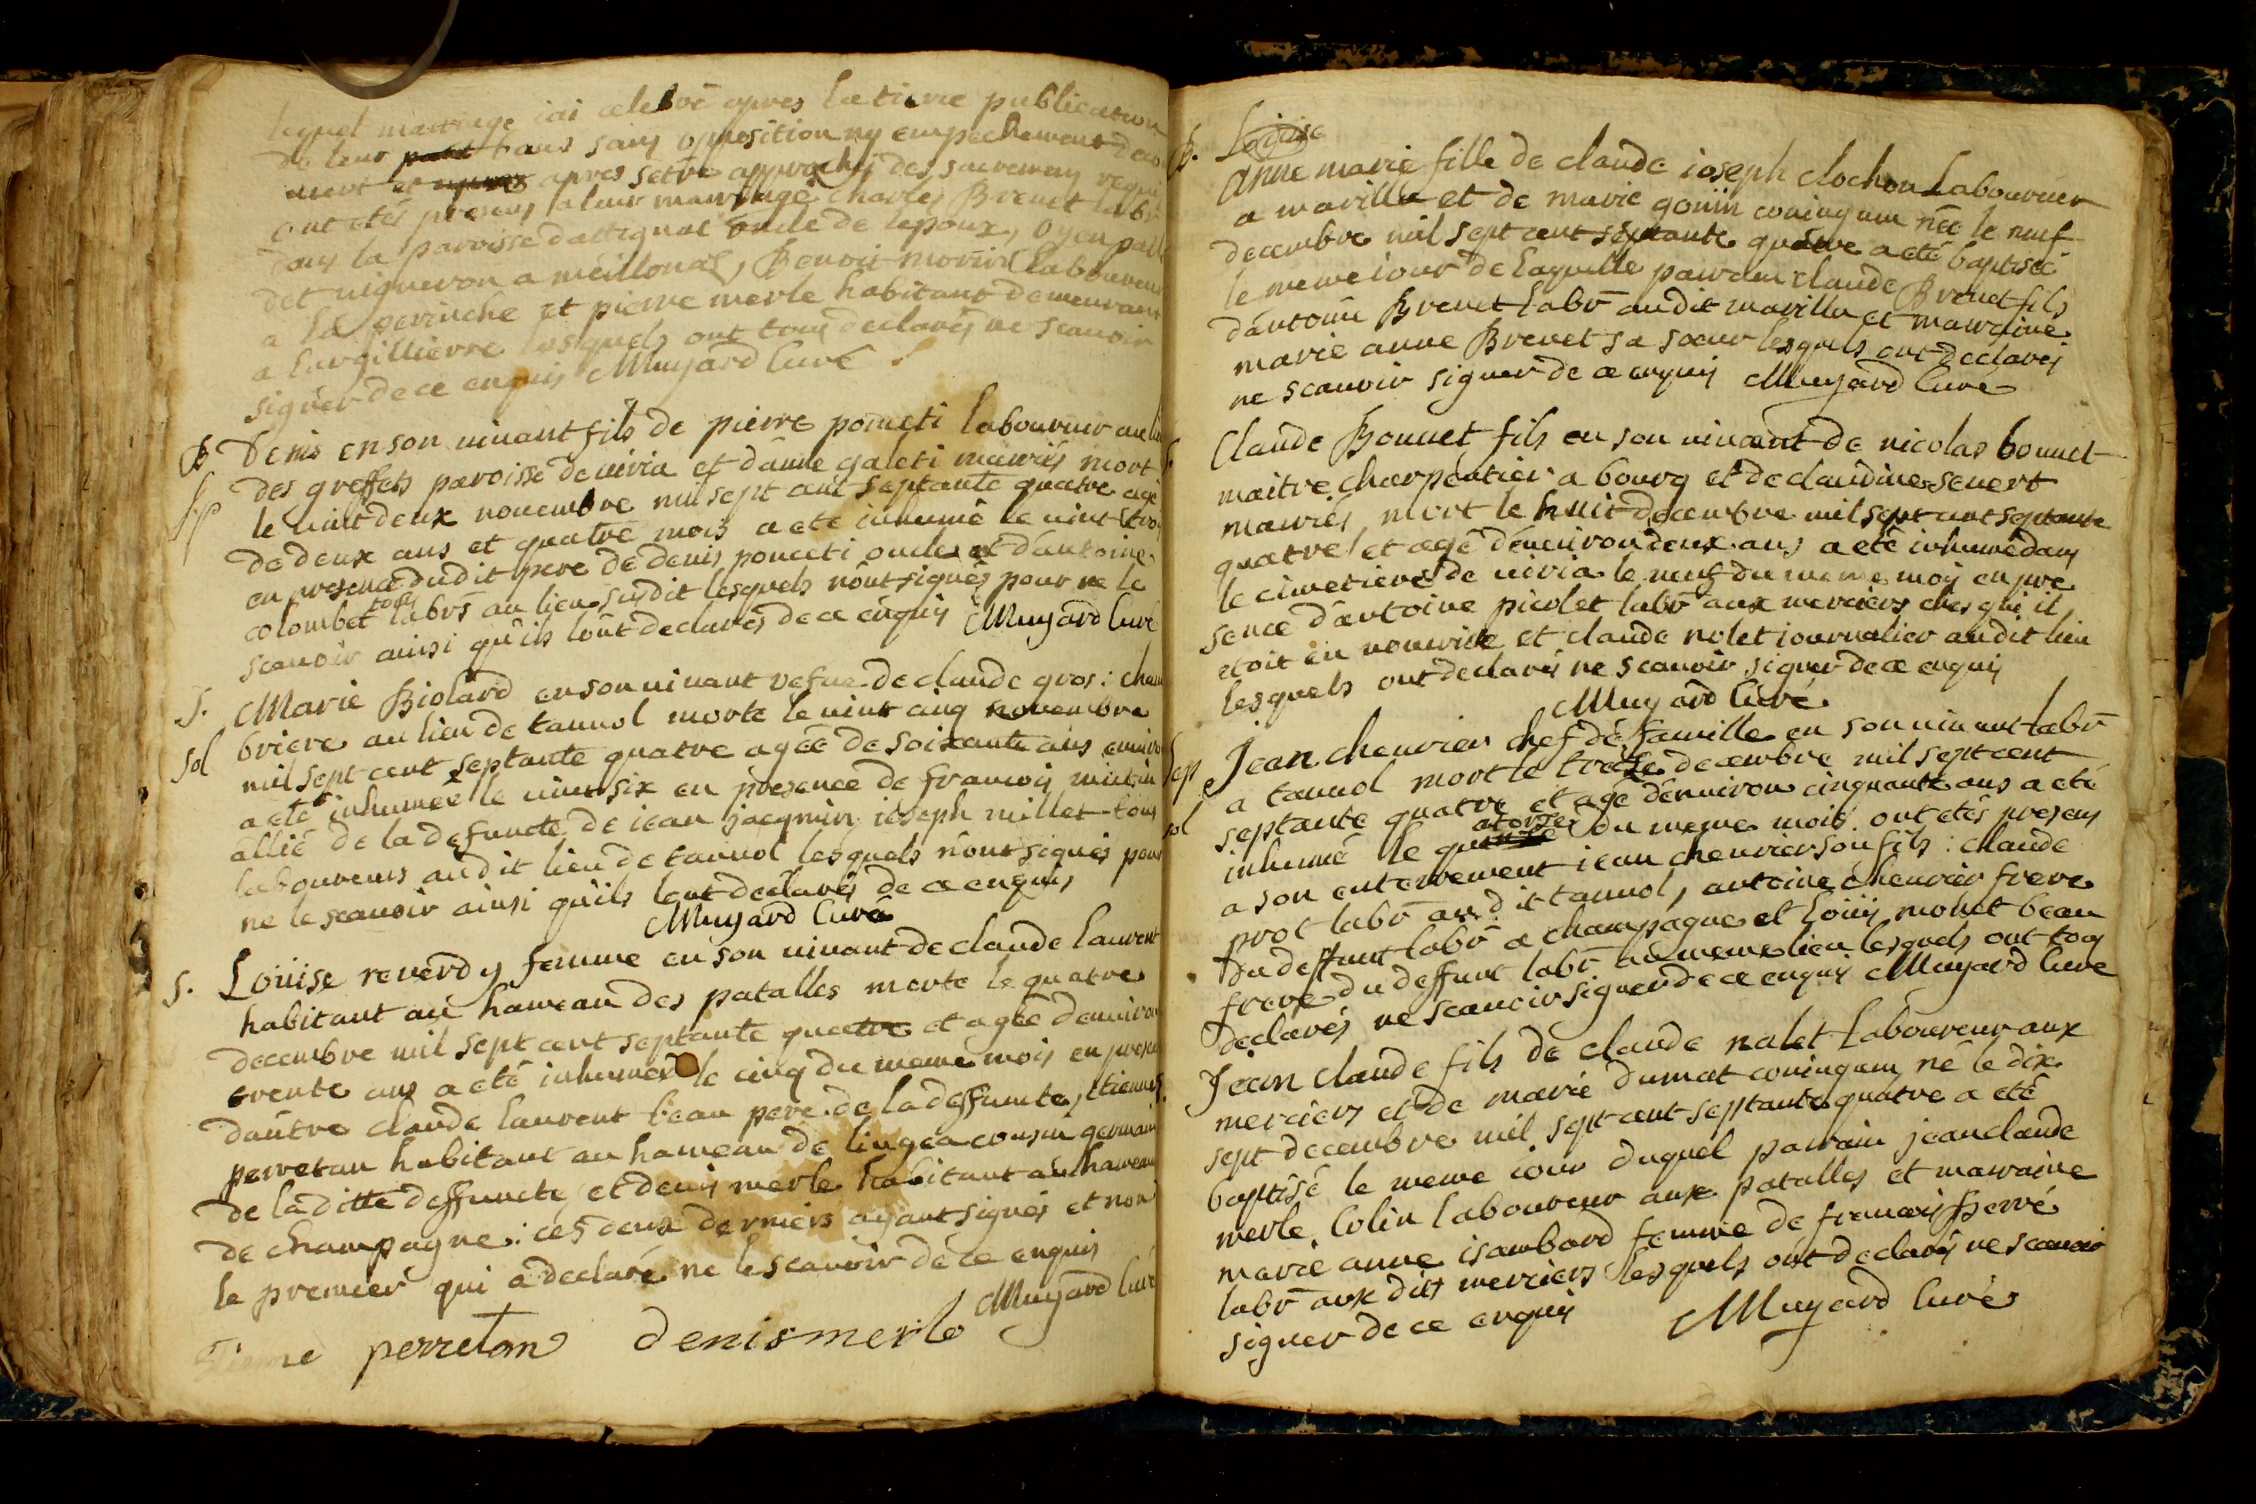 lequel mariage iai celebré apres la tierce publication
de leur bans sans opposition ny empechement
apres setre approchés des sacremens
ont etés presens a leur mariage charles Brevet labr
dans la paroisse dattignat oncle de lepoux,
det vigneron a meillonas, Benoit morin laboureur
a la perinche et pierre merle habitant demeurant
a largillierre lesquels ont tous declarés ne scavoir
signer de ce enquis Muyard Curé
B Denis en son vivant fils de pierre ponceti laboureur au
Sp des greffets paroisse de viria et danne galeti mariés mort
le vint deux novembre mil sept cent septante quatre agé
de deux ans et quatre mois a eté inhumé le vint trois
en presence dudit pere de denis ponceti oncle et dantoine
colombet tous labrs au lieu susdit lesquels nont signés pour ne le
scavoir ainsi quils lont declarés de ce enquis Muyard Curé
S. Marie Biolard en son vivant vefue de claude gros : cham
sol briere au lieu de tannol morte le vint cinq novembre
mil sept cent septante quatre agée de soixante ans environ
a eté inhumée le vint six en presence de francois
allié de la defuncte de iean jacqmin ioseph millet tous
laboureurs audit lieu de tannol lesquels nont signés pour
ne le scavoir ainsi quils lont declarés de ce enquis
Muyard Curé
S. Loüise reverdy femme en son vivant de claude laurent
habitant au hameau des patalles morte le quatre
decembre mil sept cent septante quatre et agée denviron
trente ans a eté inhumée le cinq du meme mois en presen
dautre claude laurent beau pere de la deffuncte, etienne
perretan habitant au hameau de lingea cousin germain
de la ditte deffuncte, et denis merle habitant au hameau
de champagne : ces deux derniers ayant signés et non
le premier qui a declaré ne le scavoir de ce enquis
Muyard Curé
perretan denis merle
B. Loüise
Anne marie fille de claude ioseph clochon Laboureur
a marillia et de marie goüin coniugum née le neuf
decembre mil sept cent septante quatre a eté baptisée
le meme iour de laquelle parrain claude Brevet fils
dantoine Brevet labr audit marillia et marraine
marie anne Brevet sa soeur lesquels ont declarés
ne scavoir signer de ce enquis Muyard Curé
Claude Bonnet fils en son vivant de nicolas bonnet
maitre charpentier a bourg et de claudine severt
mariés, mort le huit decembre mil sept cent septante
quatre et agé denviron deux ans a eté inhumé dans
le cimetiere de viria le neuf du meme mois en pre
sence dantoine picolet labr aux merciers ches qui il
etoit en nourice et claude nolet iournalier audit lieu
lesquels ont declarés ne scavoir signer de ce enquis
Muyard Curé
Sep Jean chevrier chef de famille en son vivant labr
sol a tannol mort le treize decembre mil sept cent
septante quatre et agé denviron cinquante ans a eté
inhumé le quatorse du meme mois ont etés presens
a son enterrement iean chevrier son fils : claude
prot labr audit tannol, antoine chevrier frere
du deffunt labr a champagne et Loüis monet beau
frere du deffunt labr au meme lieu lesquels ont tous
declarés ne scavoir signer de ce enquis Muyard Curé
Jean claude fils de claude nalet Laboureur aux
merciers et de marie dumat coniugum né le dix
sept decembre mil sept cent septante quatre a eté
baptisé le meme iour duquel parrain jean claude
merle Colin laboureur aux patalles et marraine
marie anne isambord femme de francois Hervé
labr aux dits merciers lesquels ont declarés ne scavoir
signer de ce enquis Muyard Curé